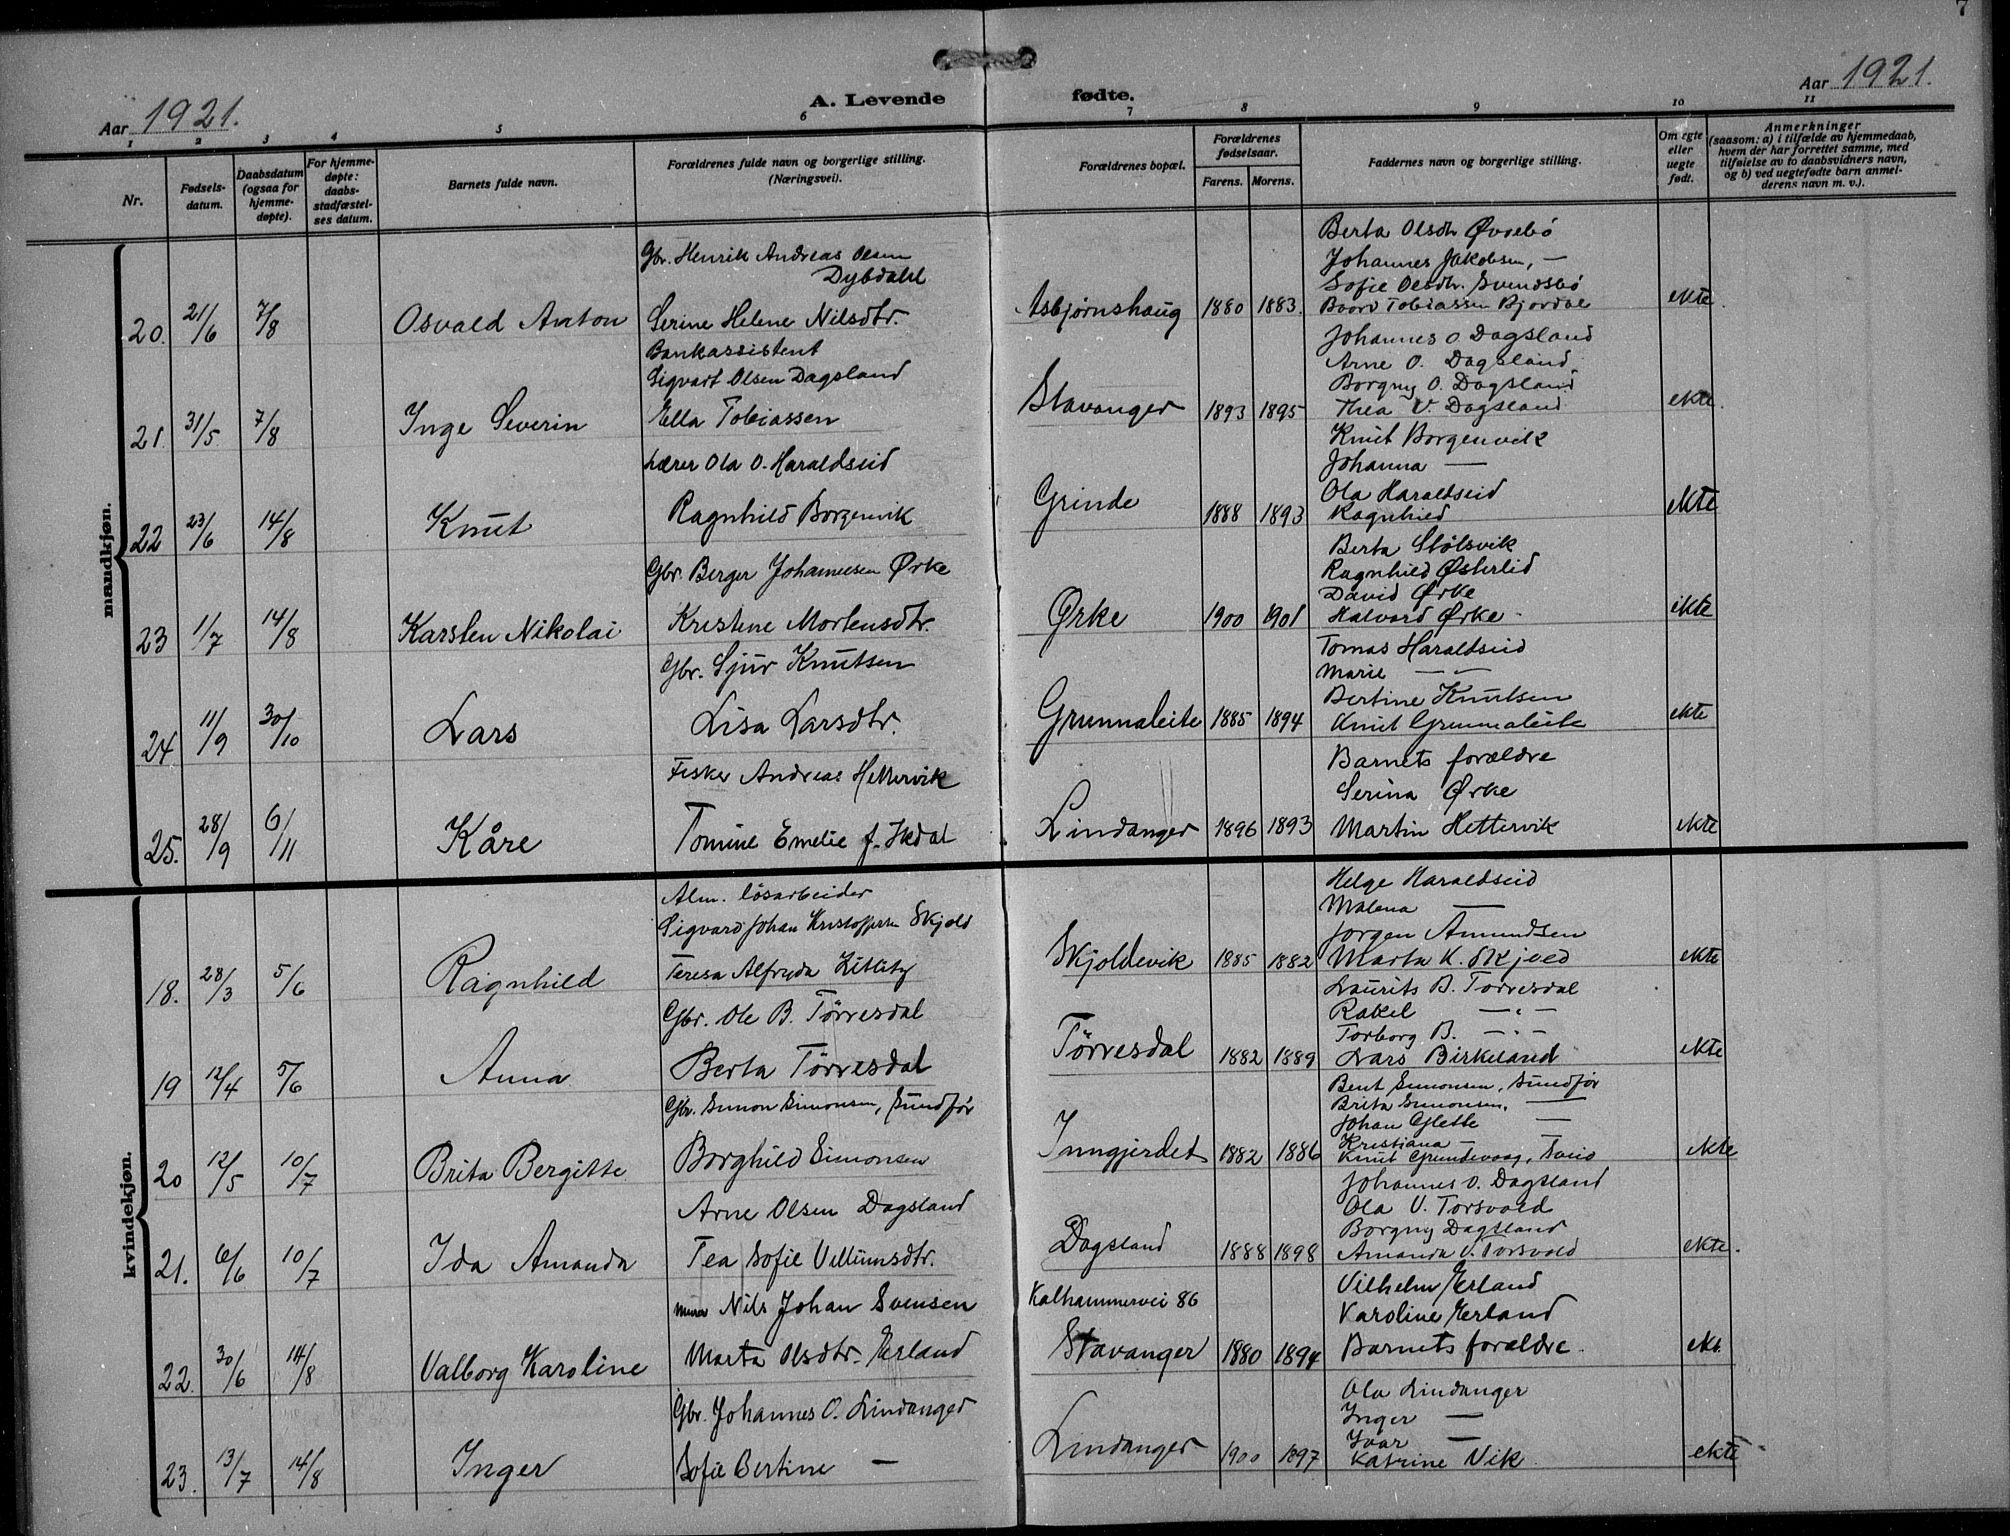 7
Aar 1921.
A. Levende
fødte.
Aar 1921.
1 2 3 4 5 6 7 8 9 10 11
Nr.
Fødsels-
datum.
Daabsdatum
(ogsaa for
hjemme-
døpte).
For hjemme-
døpte:
daabs-
stadfæstel-
ses datum.
Barnets fulde navn.
Forældrenes fulde navn og borgerlige stilling.
(Næringsvei).
Forældrenes bopæl.
Forældrenes
fødselsaar.
Farens. Morens.
Faddernes navn og borgerlige stilling.
Om egte
eller
uegte
født.
Anmerkninger
(saasom: a) i tilfælde av hjemmedaab,
hvem der har forrettet samme, med
tilføielse av to daabsvidners navn,
og b) ved uegtefødte barn anmel-
derens navn m. v.).
mandkjøn.
Gbr. Henrik Andreas Olsen
Dybdahl
20. 21/6 7/8 Osvald Anton Serine Helene Nilsdtr. Asbjørnshaug 1880 1883. ekte
Berta Olsdtr Øvrebø
Johannes Jakobsen, —
Sofie Olsdtr. Svendsbø
Baard Tobiassen Bjordal
Bankassistent
Sigvart Olsen Dagsland
21. 31/5 7/8 Inge Severin Ella Tobiassen Stavanger 1893 1895 ekte.
Johannes O Dagsland
Arne O. Dagsland
Borgny O. Dagsland
Thea V. Dagsland
Lærer Ola O. Haraldseid
22 23/6 14/8 Knut Ragnhild Borgenvik Grinde 1888 1893 ekte
Knut Borgenvik
Johanna —
Ola Haraldseid
Ragnhild
Gbr. Berger Johannesen Ørke
23 1/7 14/8 Karsten Nikolai Kristine Mortensdtr. Ørke 1900 1901 ekte
Berta Stølsvik
Ragnhild Østerlid
David Ørke
Halvard Ørke
Gbr. Sjur Knutsen
24 11/9 30/10 Lars Lisa Larsdtr. Grunnaleite 1885 1894 ekte
Tomas Haraldseid
Marie — —
Bertine Knutsen
Knut Grunnaleite
Fisker Andreas Hettervik
25. 28/9 6/11 Kåre Tomine Emelie f. Ikdal Lindanger 1896 1893 ekte
Barnets forældre
Serina Ørke
Martin Hettervik
kvindekjøn.
Alm. løsarbeider
Sigvard Johan Kristoffersen Skjold
18. 28/3 5/6 Ragnhild Teresa Alfryda Skjoldevik 1885 1882 ekte
Helge Haraldseid
Malena —
Jørgen Amundsen
Marta K. Skjold
Gbr. Ole B. Tørresdal
19 12/4 5/6 Anna Berta Tørresdal Tørresdal 1882 1889 ekte
Laurits B. Tørresdal
Rakel — " —
Torborg B. — " —
Lars Birkeland
Gbr. Simon Simonsen, Sundfør
20 12/5 10/7 Brita Bergitte Borghild Simonsen Inngjerdet 1882 1886 ekte
Bent Simonsen, Sundfør
Brita Simonsen, —
Johan Glette —
Kristiana —
Knut Grundevaag,
Arne Olsen Dagsland
21. 6/6 10/7 Ida Amanda Tea Sofie Villumsdtr. Dagsland 1888 1898 ekte.
Johannes O. Dagsland
Ola V. Torsvald
Borgny Dagsland
Amanda V. Torsvald
Murer Nils Johan Svensen
Kalhammervei 86
22. 30/6 14/8 Valborg Karoline Marta Olsdtr. Erland Stavanger 1880 1894 ekt.
Vilhelm Erland
Karoline Erland
Barnets forældre.
Gbr. Johannes O. Lindanger
23. 13/7 14/8 Inger Sofie Bertine — Lindanger 1900 1897 ekte
Ola Lindanger
Inger —
Ivar —
Katrine Vik